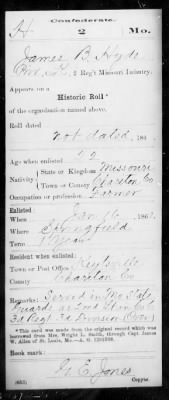 Confederate.
H 2 Mo.
James B. Hyde
Co. 2 Reg't Missouri Infantry.
Appears on a
Historic Roll*
of the organization named above.
Roll dated
not dated, 186 .
Age when enlisted 22
Nativity State or Kingdom Missouri
Town or County Chariton Co
Occupation or profession Farmer
Enlisted:
When Jan 16, 1862.
Where Springfield
Term 1 Year
Resident when enlisted:
Town or Post Office Keytesville
County Chariton Co
Remarks: Served in Mo State
Guards in 2nd
3d Regt 3d Division
*This card was made from the original record which was
borrowed from Mrs. Wright L. Smith, through Capt. James
W. Allen of St. Louis, Mo.
Book mark:
G. E. Jones
Copyist.